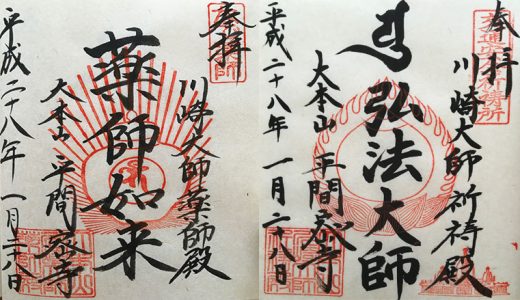 奉拝
川崎大師祈祷殿
弘法大師
大本山 平間密寺
平成二十八年 一月二十八日
奉拝
川崎大師薬師殿
薬師如来
大本山 平間密寺
平成二十八年 一月二十八日